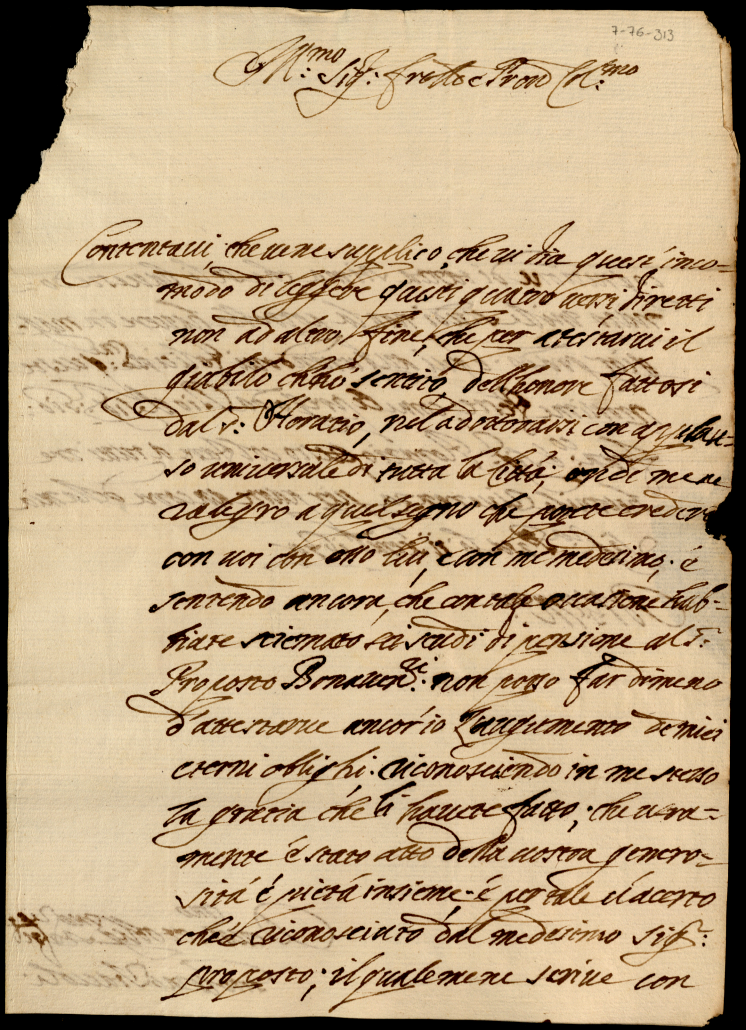 7-76-313
M:mo Sig: fratello e Pron Col:mo
Contentaui, che uene supplico, che ui dia quest' inco-
modo di leggere questi quattro uersi diretti
non ad altro fine, che per atestarui il
giubilo ch'hò sentito dell'honore fattosi
dal S: Horatio, nel adottorarsi con applau-
so uniuersale di tutta la Città; onde me ne
ralegro a quel segno che potete credere
con uoi con esso lui, e con me medesimo; è
sentendo ancora, che con tale occasione hab-
biate scemato sei scudi di pensione al S:
Proposto Bonauen: non posso far dimeno
d'attestarue ancor'io l'augumento de miei
eterni oblighi. riconosciendo in me stesso
la gratia che li hauete fatto; che uera-
mente è stato atto della uostra genero-
sità è pietà insieme. è per tale u'acerto
ch'è riconosciuto dal medesimo sig:
proposto; il quale me ne scriue con